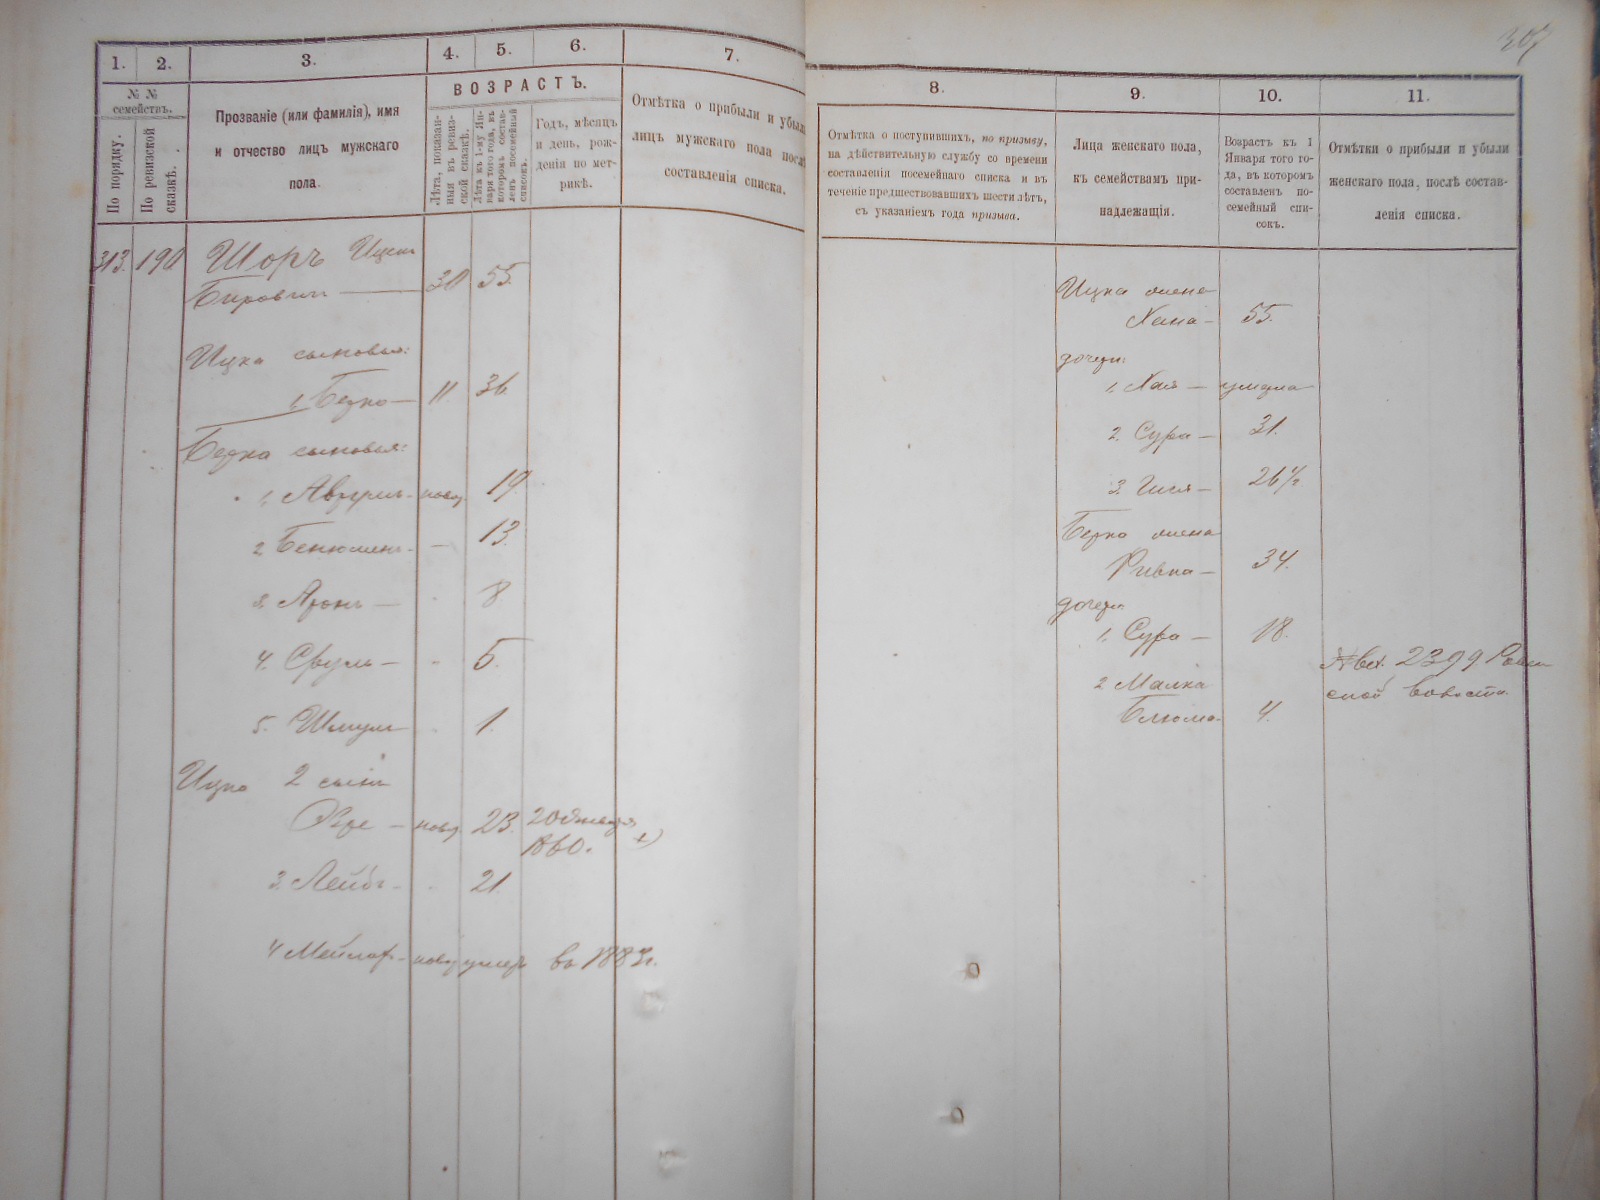 307
1. 2. 3. 4. 5. 6. 7.
№ №
семействъ.
По порядку.
По ревизской
сказкѣ.
Прозваніе (или фамилія), имя
и отчество лицъ мужскаго
пола.
ВОЗРАСТЪ.
Лѣта, показан-
ныя въ ревиз-
ской сказкѣ.
Лѣта къ 1-му Ян-
варя того года, въ
которомъ состав-
ленъ посемейный
списокъ.
Годъ, мѣсяцъ
и день, рож-
денія по мет-
рикѣ.
Отмѣтка о прибыли и убыли
лицъ мужского пола послѣ
составленія списка.
313. 190 Шоръ Ицко
Беровичъ — 30 55.
Ицка сыновья:
1. Берко — 11 36.
Берка сыновья:
1. Аврумъ - новор 19.
2 Бенюминъ - — 13.
3. Аронъ — 8
4. Сруль — 5.
5. Шмуль 1.
Ицко 2 сынъ
— новор. 23. 20
1860.
3. Лейба - 21.
4 - новор умеръ въ 1883г.
8. 9. 10. 11.
Отмѣтка о поступившихъ, по призыву,
на дѣйствительную службу со времени
составленія посемейнаго списка и въ
теченіе предшествовавшихъ шести лѣтъ,
съ указаніемъ года призыва.
Лица женскаго пола,
къ семействамъ при-
надлежащія.
Возрастъ къ 1
Января того го-
да, въ которомъ
составленъ по-
семейный спи-
сокъ.
Отмѣтки о прибыли и убыли
женскаго пола, послѣ состав-
ленія списка.
Ицка жена
Хана — 55.
дочери:
1. Хая — умерла
2. Сура — 31.
3. — 26½
Берко жена
Ривка — 34.
дочери
1. Сура — 18.
2 Малка
Блюма 4.
2399